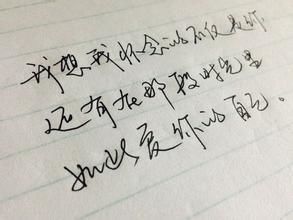 我想我怀念的不仅是你
还有在那段时光里
如此爱你的自己。